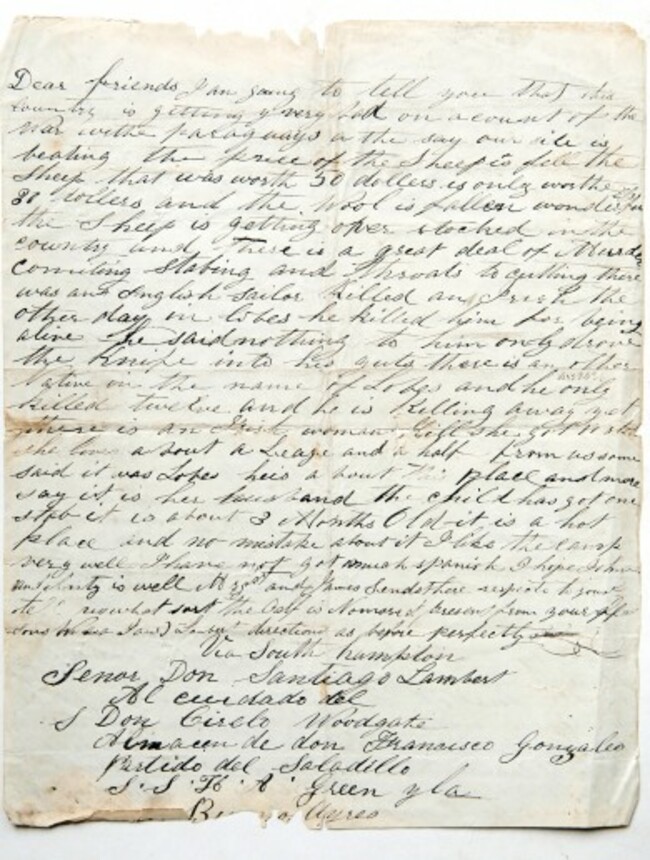 Dear friends I am going to tell you that this
country is getting very bad on acount of the
War withe paraguays a the say our side is
beating the price of the Sheep is fell the
Sheep that was worth 50 dollers is only worthe
20 dollers and the Wool is fallen
the Sheep is getting over stocked in the
country and There is a great deal of Murder
comiting Stabing and Throats to cutting there
was and English sailor killed an Irish the
other day in Lobes he killed him for being
alive he said nothing to him only drove
the Knife into his guts there is an other
Native on the name of Lobes and he only
killed twelve and he is Killing away yet
there is an Irish woman Kill she got
she lives about a League and a half from us some
said it was Lobes he is about This place and more
say it is her husband the child has got one
stab it is about 3 Months Old it is a hot
place and no mistake about it I like the camp
very well I have not got much spanish I hope
is well and James Sends there respects to you
what sort the is from your
direction as before perfectly
Via South hampton
Senor Don Santiago Lambert
Al cuidado del
S Don Cirelo Woodgate
Almacen de don Francisco Gonzales
Partido del Saladillo
S. S. H. A. Green y la
Ayres